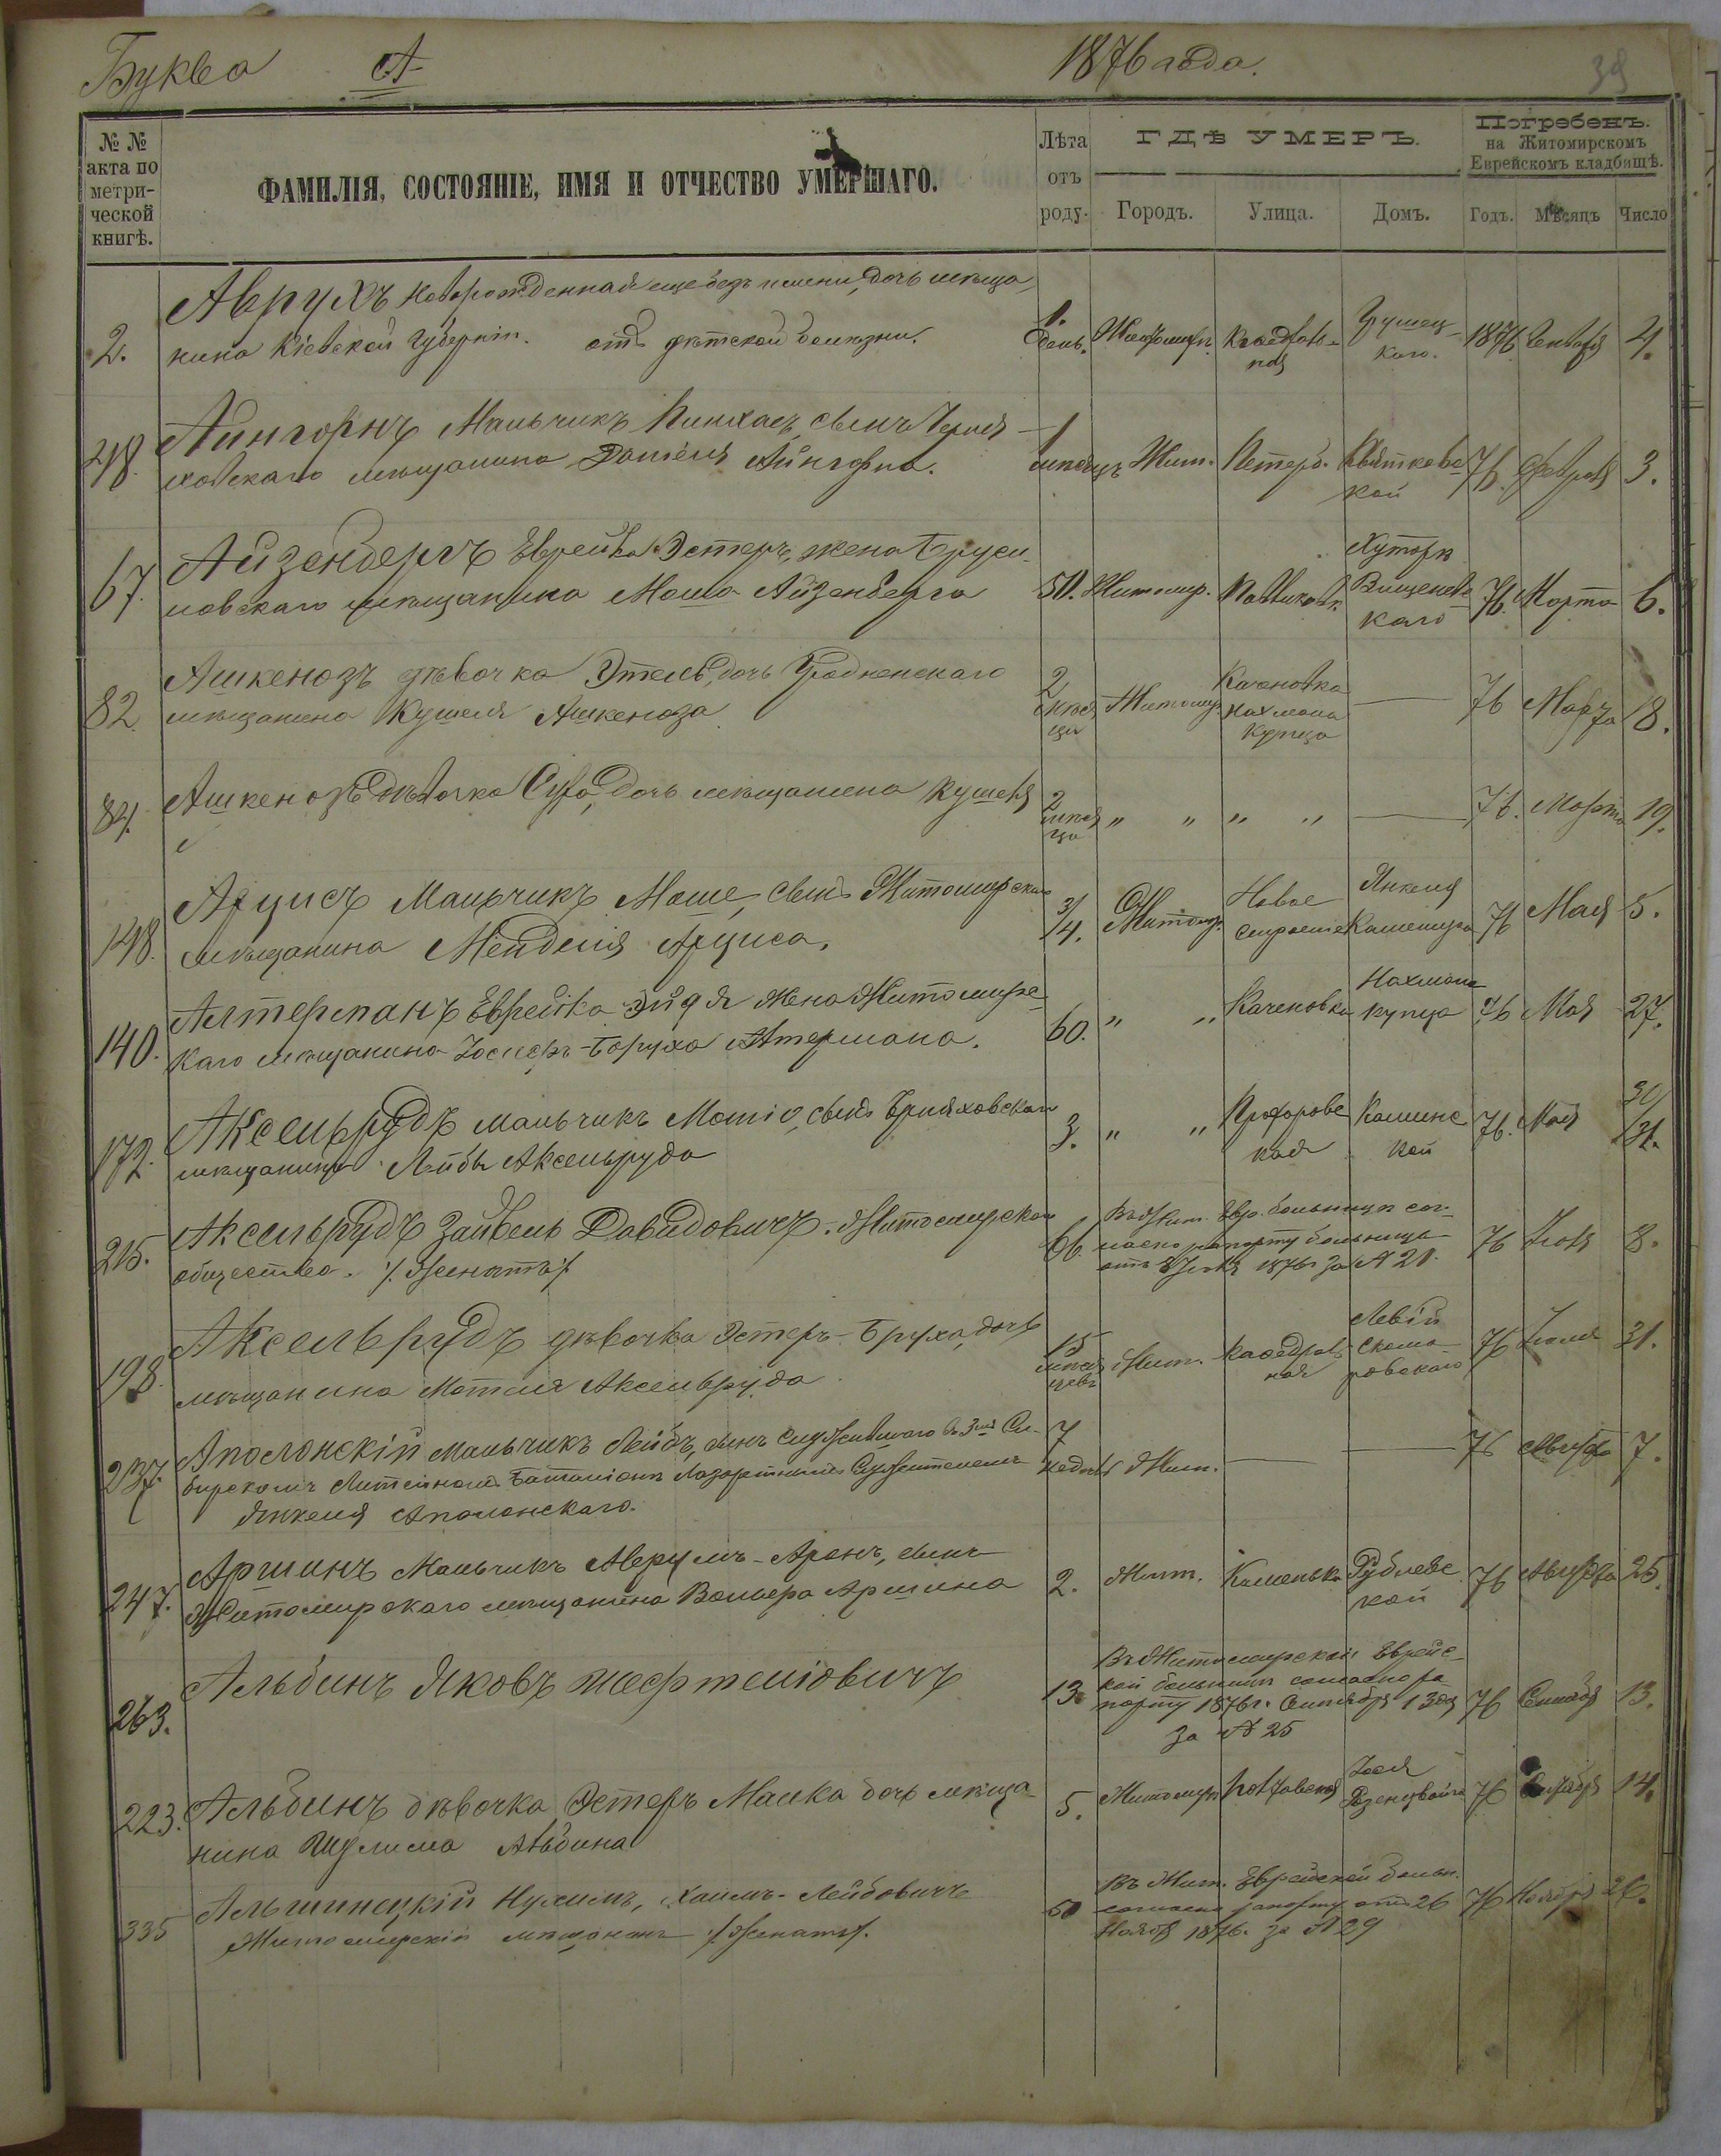 Буква А
1876 года.
39
№ № акта по метри-ческой книгѣ.
ФАМИЛІЯ, СОСТОЯНІЕ, ИМЯ И ОТЧЕСТВО УМЕРШАГО.
Лѣта отъ роду.
ГДѢ УМЕРЪ.
Городъ. Улица. Домъ.
Погребенъ.
на Житомирскомъ
Еврейскомъ кладбищѣ.
Годъ. Мѣсяцъ Число
Аврухъ новорожденная еще безъ имени, дочь мѣща
2. нина Кіевской Губерніи. отъ дѣтской болѣзни. 1. день. 1876 4.
Айнгорнъ Мальчикъ Пинхасъ сынъ Черня-
48. ховскаго мѣщанина Даніеля Айнгорна. 1 мѣсяцъ Жит. Петерб. Квятковс кой 76 Февраля 3.
Айзенбергъ Еврейка Эстеръ, жена Бруси-
67. ловскаго мѣщанина Мошо Айзенберга 50. Житомир. Хуторъ каго 76. Марта 6.
Ашкенозъ дѣвочка Этель, дочь Гродненскаго
82. мѣщанина Кушеля Ашкеноза 2 мѣся ца Житомир. Каченовка Нахмана Купца — 76 Марта 18.
84. Ашкенозъ дѣвочка Сура, дочь мѣщанина Кушеля 2 мѣся ца " " " " — 76. Марта 19.
Арцисъ Мальчикъ Моше, сынъ Житомирскаго
148. мѣщанина Менделя Арциса. 3/4. Житомир. Новое строение Янкеля 76 Мая 5.
Алтерманъ Еврейка Эйдя жена Житомирс-
140. каго мѣщанина Іосифъ-Боруха Атермана. 60. " " Каченовка Нахмана купца 76 Мая 27.
Аксельрудъ мальчикъ Мотіо, сынъ
172. мѣщанина Лейбы Аксельруда 3. " " Прохоровс кая Камине кой 76. Мая 30/31.
Аксельрудъ Зайвель Давидовичъ. Житомирскаго
215. общества. /. Женатъ /. 66. Въ Жит. Евр. больницѣ сог- ласно рапорту больницы отъ 8 1876 за № 21. 76 8.
Аксельрудъ дѣвочка Эстеръ-Бруха, дочь
198. мѣщанина Мотеля Аксельруда 15 мѣся цевъ Жит. Кафедраль ная Скома- ровскаго 76 Іюля 31.
Аполонскій мальчикъ Лейбъ, сынъ Служившаго въ 3мъ Си-
237. бирскомъ Литейномъ Баталіонѣ Лазаретнымъ Служителемъ 7 недѣль Жит. — — 76 Августа 7.
Янкеля Аполонскаго.
Аршинъ Мальчикъ Аврумъ-Аронъ, сынъ
247. Житомирскаго мѣщанина Вольера Аршина 2. Жит. Каменька Рублевс кой 76 Августа 25.
263. Альбинъ Яковъ Шефтеліовичъ 13 Въ Житомирской Еврейс- кой больницѣ согласно ра порту 1876 г. Сентября 13 дня за № 25 76 Сентября 13.
223. Альбинъ дѣвочка Эстеръ Малка дочь мѣща-
нина Шулима Альбина 5. Житомиръ Розенцвайга 76 14.
Альшинецкій Нухимъ, Хаимъ-Лейбовичъ
335 Житомирскій мѣщанинъ /. Женатъ /. 50 Въ Жит. Еврейской больн. согласно рапорту отъ 26 Ноября 1876. за № 29 76 Ноября 26.